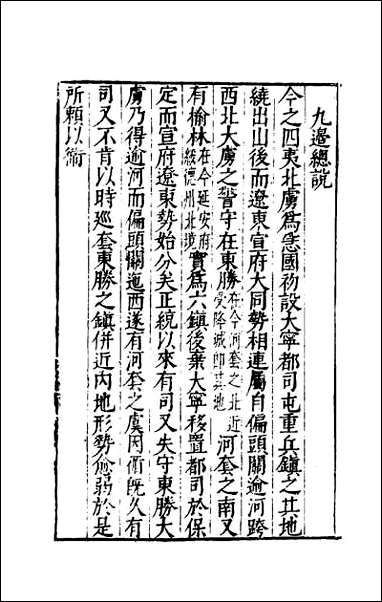 九邊總說
今之四夷北虜爲急國初設大寧都司屯重兵鎮之其地
繞出山後而遼東宣府大同勢相連屬自偏頭關逾河跨
西北大虜之警守在東勝在今河套之北近受降城即其地河套之南又
有榆林在今延安府綏德州北境實爲六鎮後棄大寧移置都司於保
定而宣府遼東勢始分矣正統以來有司又失守東勝大
虜乃得逾河而偏頭關迤西遂有河套之虞因循既久有
司又不肯以時巡套東勝之鎮併近内地形勢愈弱於是
所賴以衛